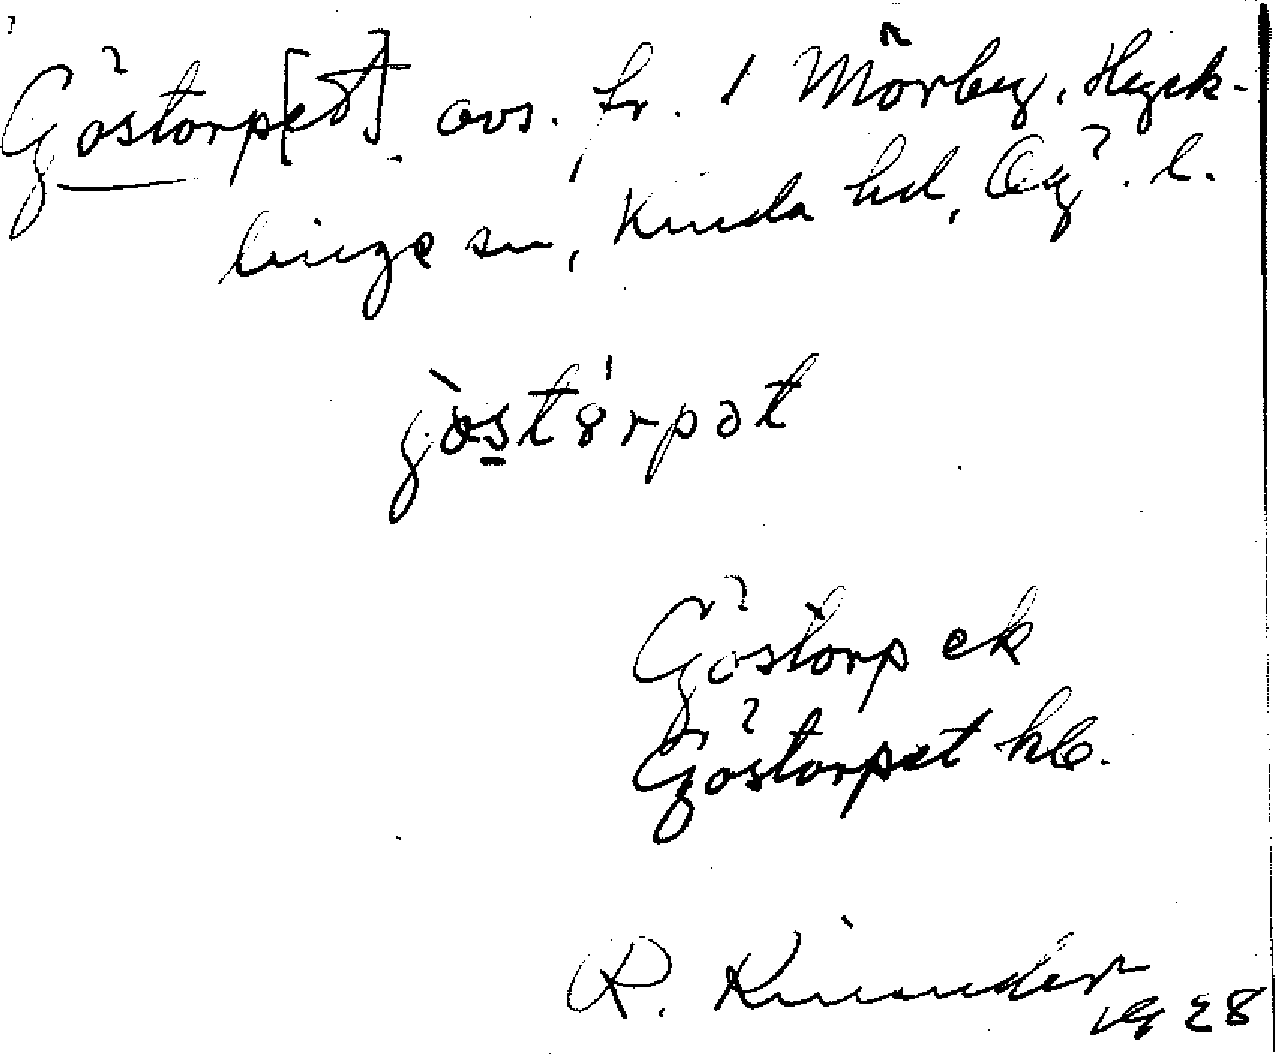 Göstorp[et] avs. fr. 1 Mörby, Hyck-
linge sn, Kinda hd, Ög. l.
gö̀stórpət
Göstorp ek
Göstorpet hb.
R. Kinander
1928